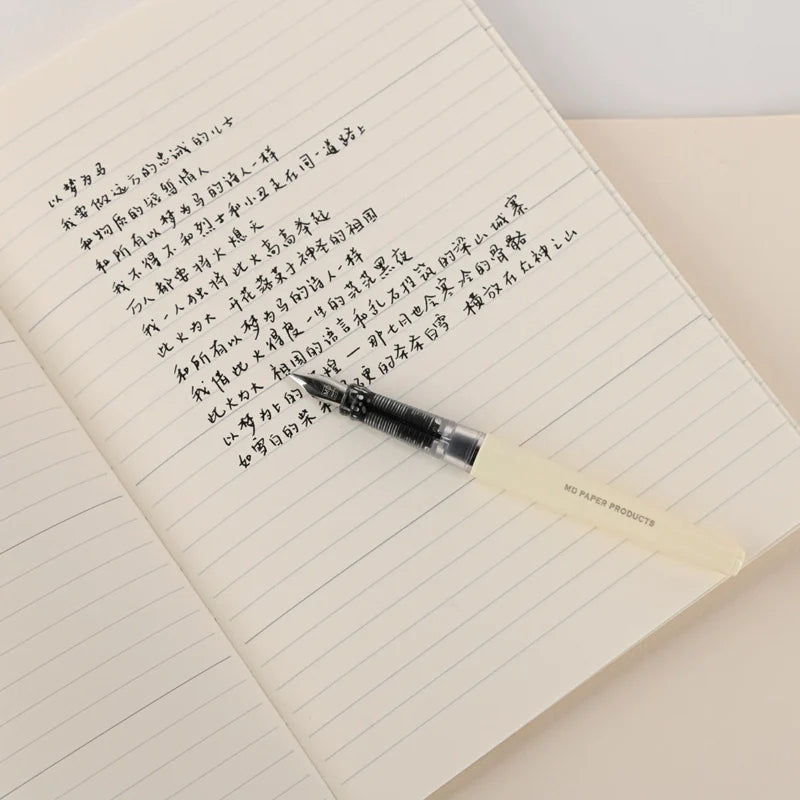 以梦为马
我要做远方的忠诚的儿子
和物质的短暂情人
和所有以梦为马的诗人一样
我不得不和烈士和小丑走在同一道路上
万人都要将火熄灭
我一人独将此火高高举起
此火为大 开花落英于神圣的祖国
和所有以梦为马的诗人一样
我借此火得度一生的茫茫黑夜
此火为大 祖国的语言和乱石投筑的梁山城寨
以梦为上的 煌 — 那七月也会寒冷的骨骼
如雪白的柴 硬的条条白雪 横放在众神之山
MD PAPER PRODUCTS